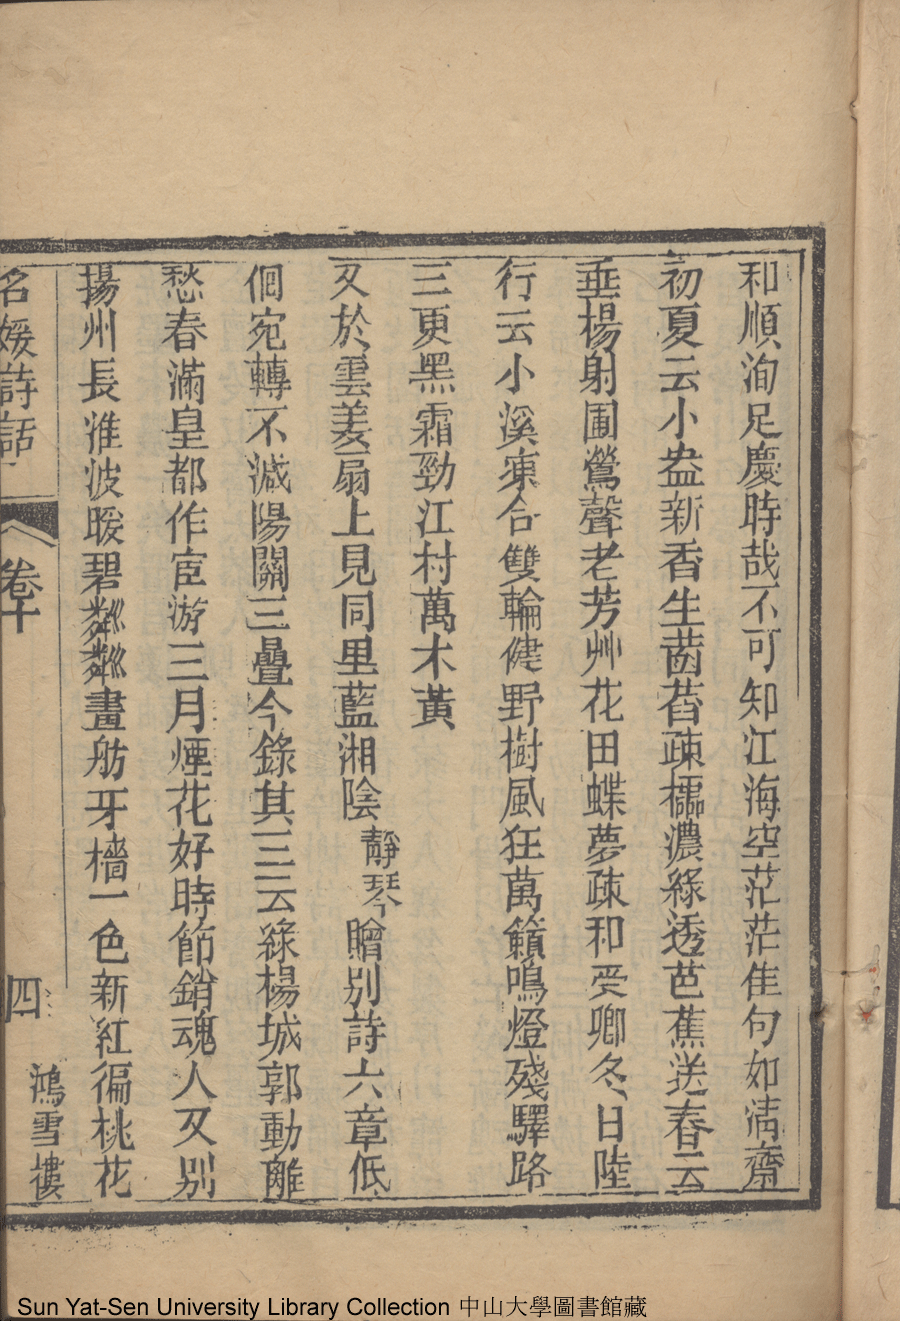 和順洵足慶時哉不可知江海空茫茫佳句如清齋
初夏云小盎新香生茝苕疎櫺濃綠透芭蕉送春云
垂楊射圃鶯聲老芳艸花田蝶夢疎和受卿冬日陸
行云小溪凍合雙輪健野樹風狂萬籟鳴燈殘驛路
三更黑霜勁江村萬木黃
又於雲姜扇上見同里藍湘陰靜琴贈別詩六章低
佪宛轉不減陽關三疊今錄其三云綠楊城郭動離
愁春滿皇都作宦游三月煙花好時節銷魂人又別
揚州長淮波暖碧粼粼畫舫牙檣一色新紅徧桃花
名媛詩話
卷十
四
鴻雪樓
Sun Yat-Sen University Library Collection 中山大學圖書館藏